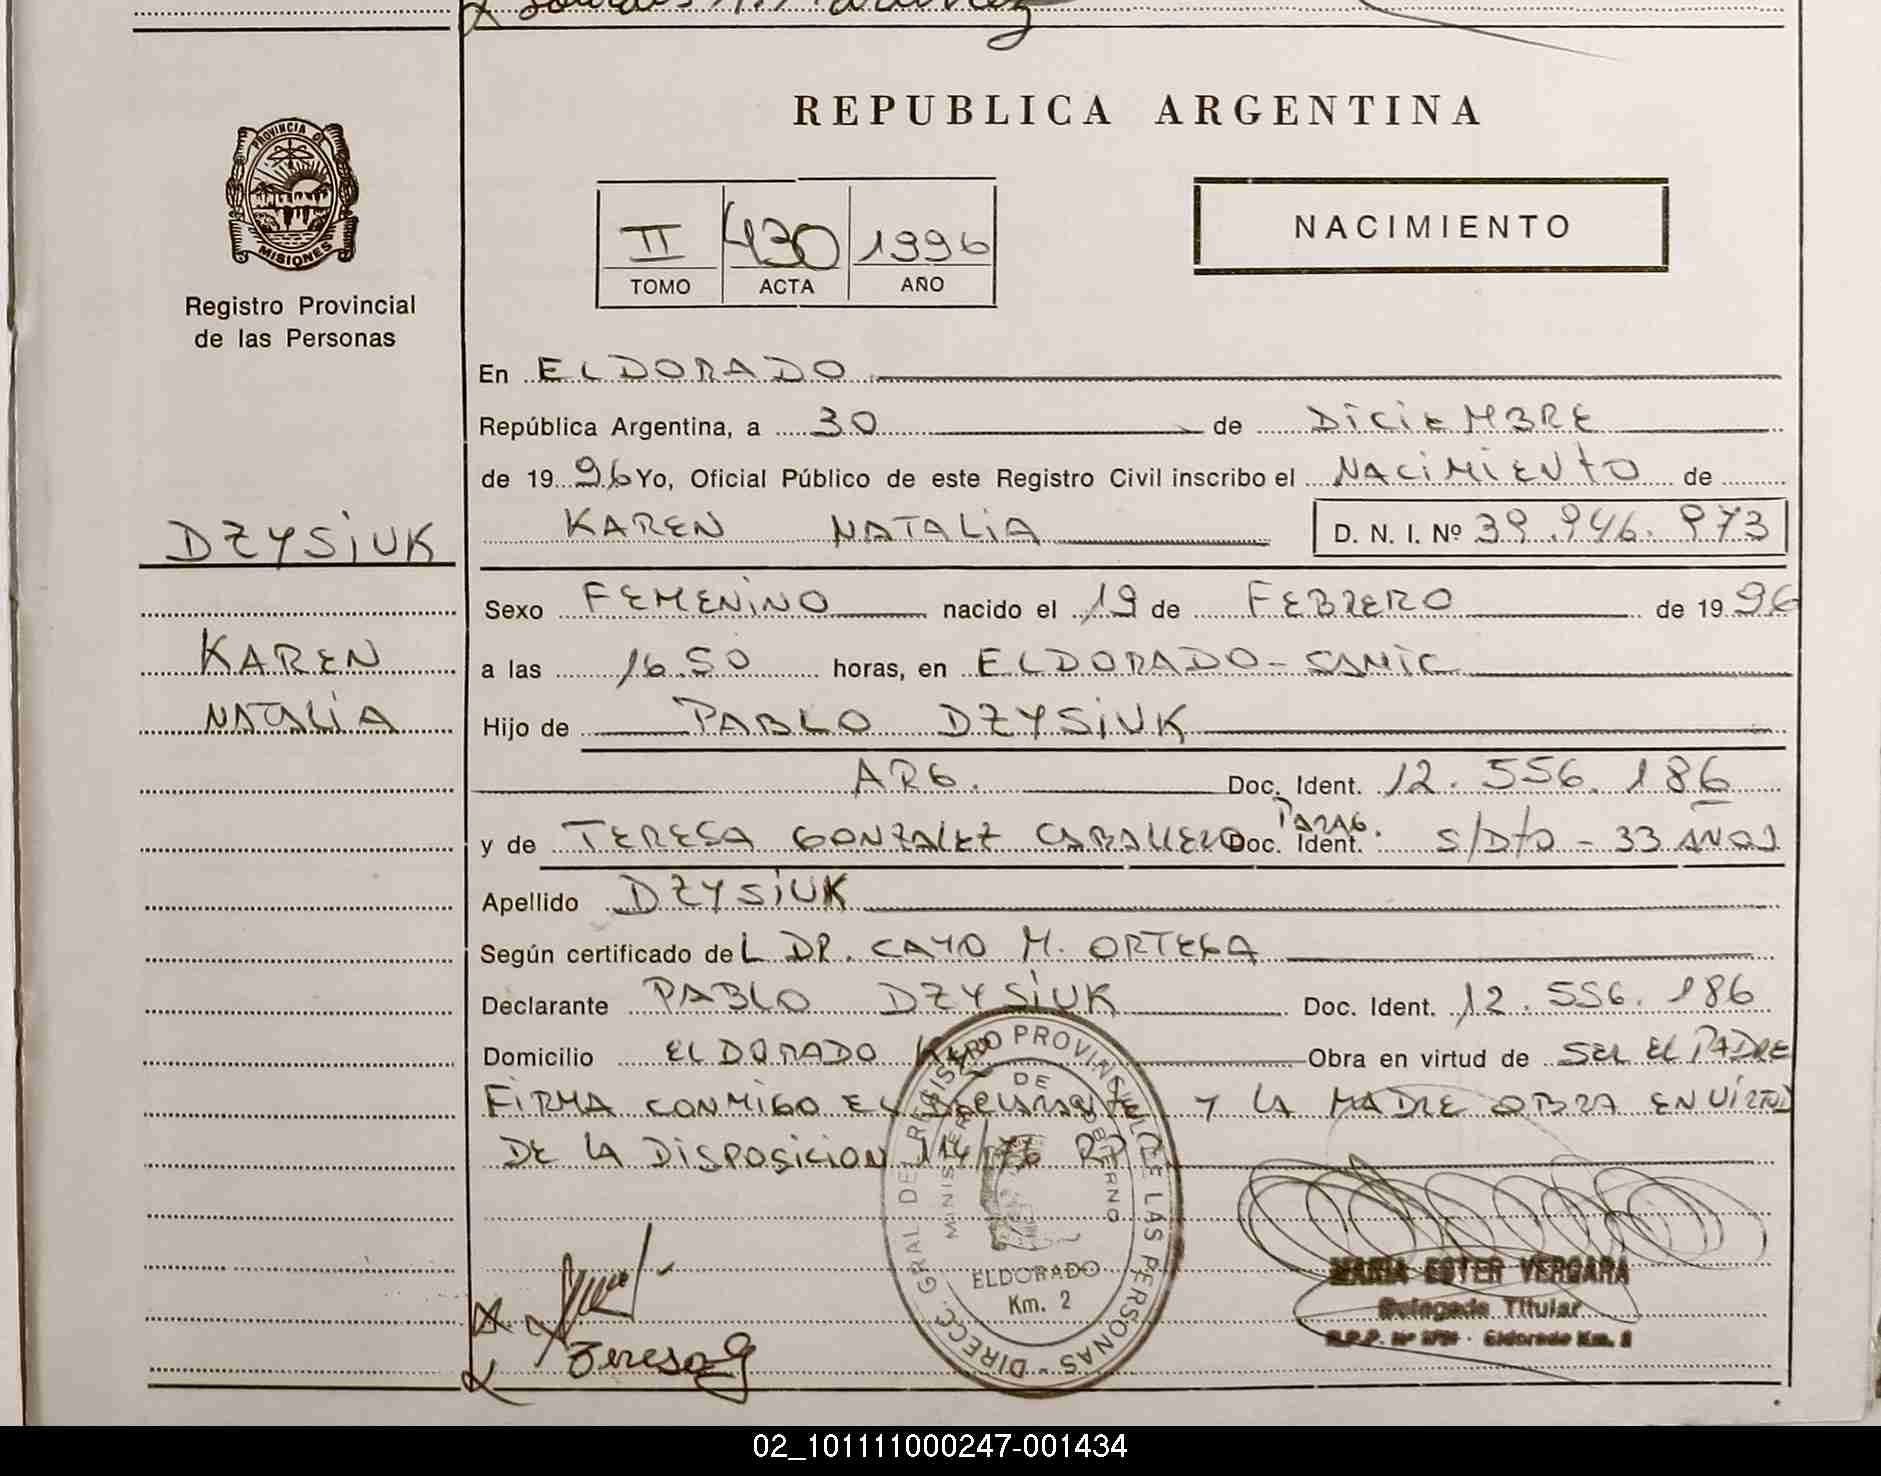 Lourdes M. Martinez
REPUBLICA ARGENTINA
PROVINCIA DE
MISIONES
Registro Provincial
de las Personas
II 430 1996
TOMO ACTA AÑO
NACIMIENTO
En ELDORADO
República Argentina, a 30 de DICIEMBRE
de 1996 Yo, Oficial Público de este Registro Civil inscribo el NACIMIENTO de
DZYSIUK
KAREN NATALIA D. N. I. Nº 39.946.973
Sexo FEMENINO nacido el 19 de FEBRERO de 1996
KAREN
a las 16.50 horas, en ELDORADO - SAMIC
NATALIA
Hijo de PABLO DZYSIUK
ARG. Doc. Ident. 12.556.186
y de TERESA GONZALEZ CABALLERO PARAG. Doc. Ident. S/DTO - 33 AÑOS
Apellido DZYSIUK
Según certificado deL DR. CAYO M. ORTEGA
Declarante PABLO DZYSIUK Doc. Ident. 12.556.186
Domicilio ELDORADO Obra en virtud de SER EL PADRE
FIRMA CONMIGO EL DECLARANTE Y LA MADRE OBRA EN VIRTUD
DE LA DISPOSICION 114/76 RPP
DIRECC. GRAL DEL REGISTRO PROVINCIAL DE LAS PERSONAS
MINISTERIO DE GOBIERNO
ELDORADO
Km. 2
MARIA ESTER VERGARA
Delegada Titular
R.P.P. Nº Eldorado Km. 2
Teresa G
02_101111000247-001434